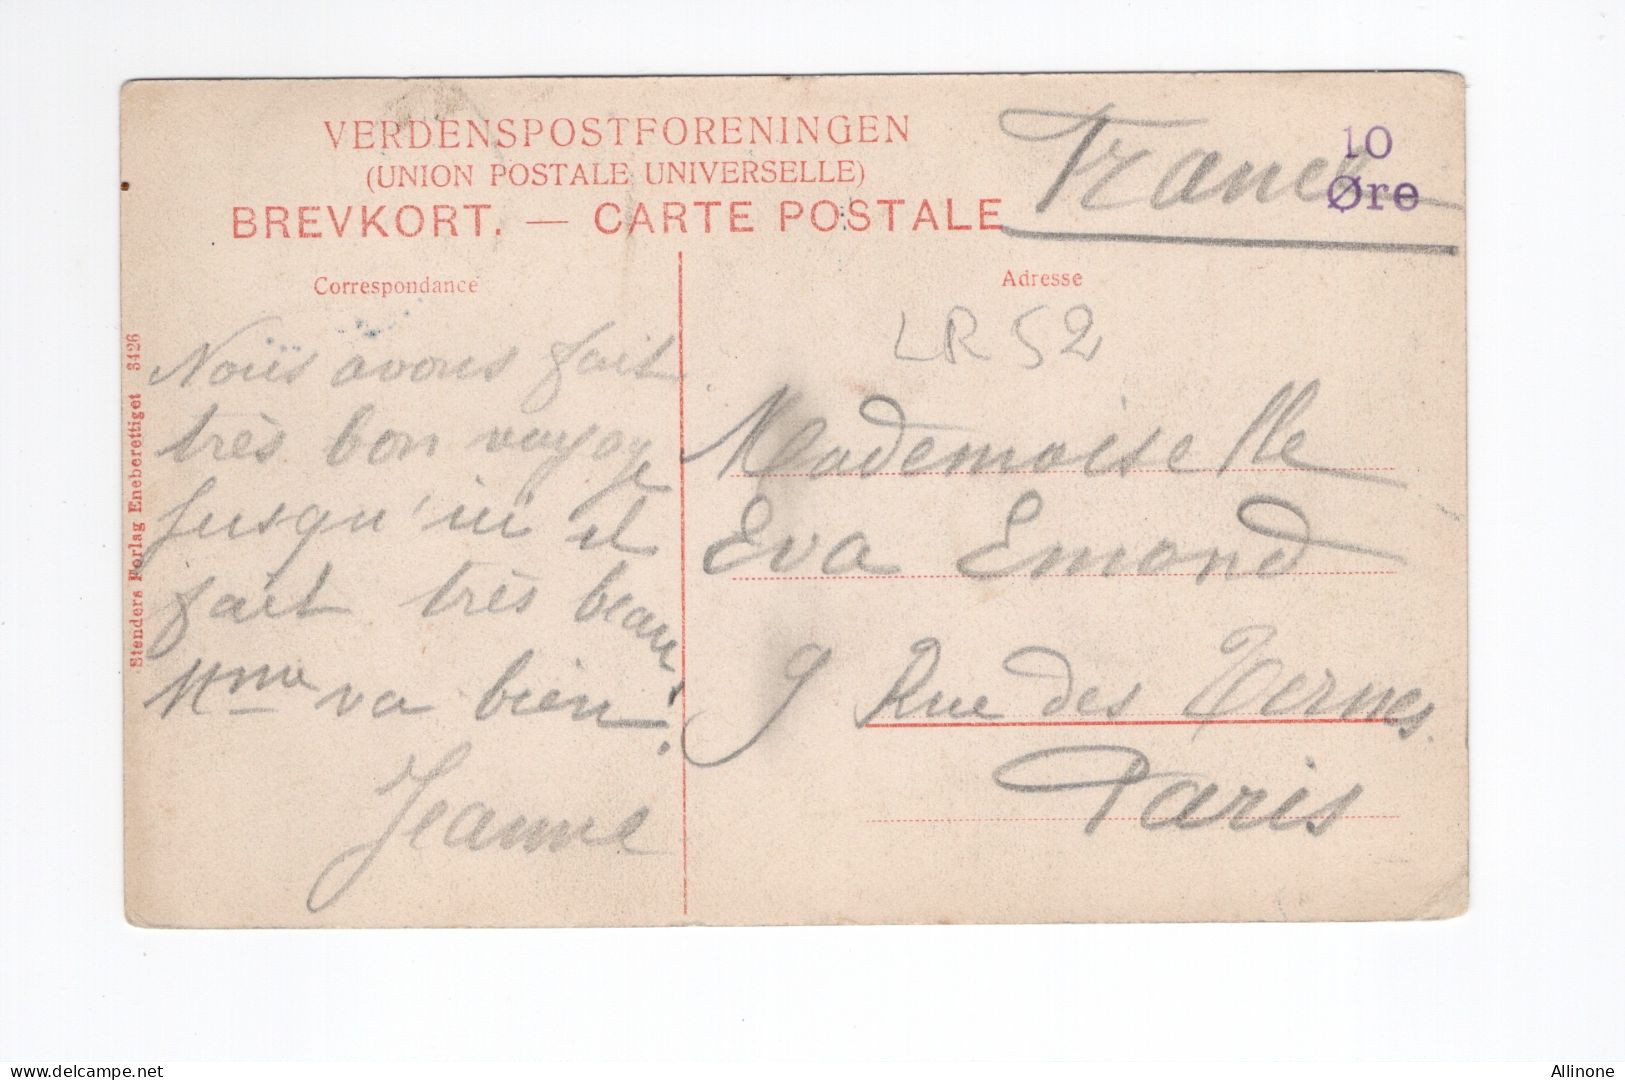 VERDENSPOSTFORENINGEN
(UNION POSTALE UNIVERSELLE)
BREVKORT. — CARTE POSTALE
France
10
Øre
Correspondance
Adresse
LR 52
Nous avons fait
très bon voyage
jusqu'ici il
fait très beau
Mme va bien.
Jeanne
Mademoiselle
Eva Emond
9 Rue des Ternes.
Paris
Stenders Forlag Eneberettiget 3426
delcampe.net
Allinone